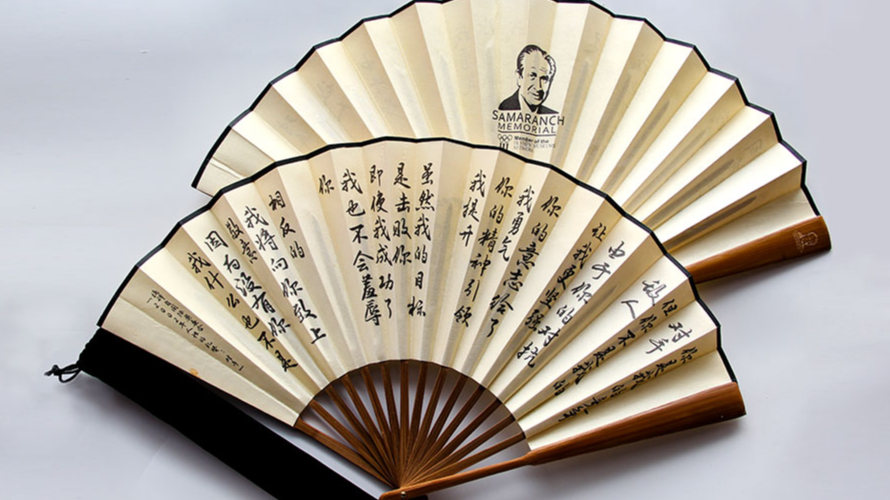 SAMARANCH
MEMORIAL
Member of the
OLYMPIC MUSEUMS
NETWORK
你是我的竞争
对手
但你不是我的
敌人
由于你的对抗
让我更坚强
你的意志给了
我勇气
你的精神引领
我提升
虽然我的目标
是击败你
即使我成功了
我也不会羞辱
你
相反的
我将向你致上
敬意
因为没有你
我什么也不是